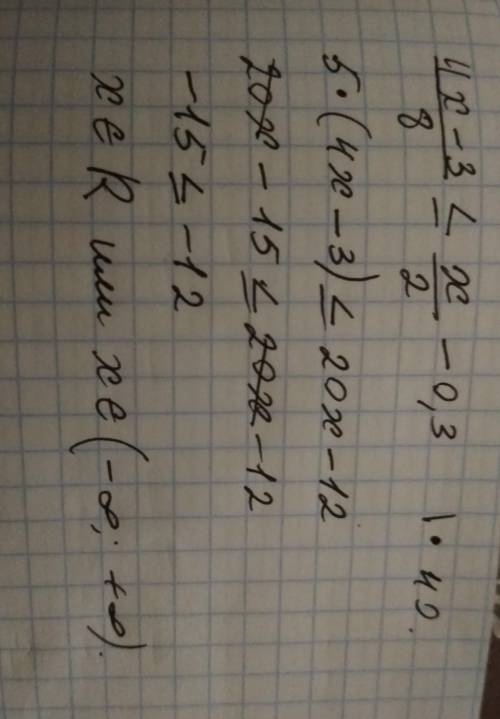 (4x-3)/8 ≤ x/2 - 0,3 \·40.
5·(4x-3) ≤ 20x-12
20x-15 ≤ 20x-12
-15 ≤ -12
x∈R или x∈(-∞; +∞).